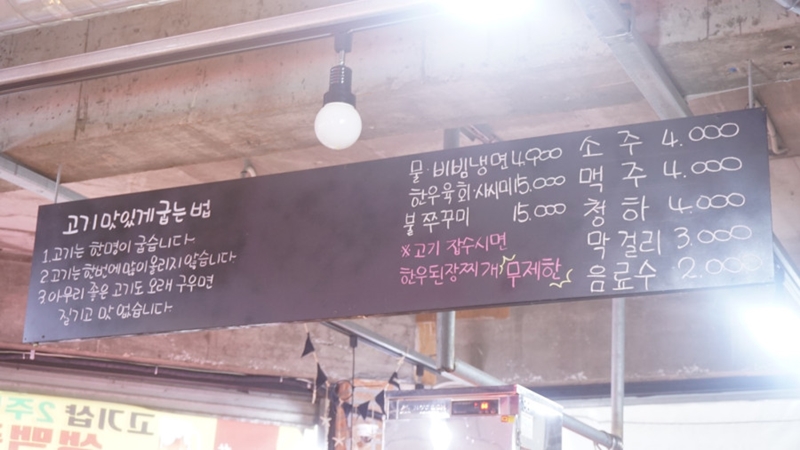 고기 맛있게 굽는 법
1. 고기는 한명이 굽습니다
2. 고기는 한번에 많이 올리지 않습니다
3 아무리 좋은 고기도 오래 구우면
질기고 맛 없습니다
물·비빔냉면 4.900
한우육회·사시미 15.000
불쭈꾸미 15.000
※고기 잡수시면
한우된장찌개 무제한
소 주 4.000
맥 주 4.000
청 하 4.000
막걸리 3.000
음료수 2.000
고기삽 2주